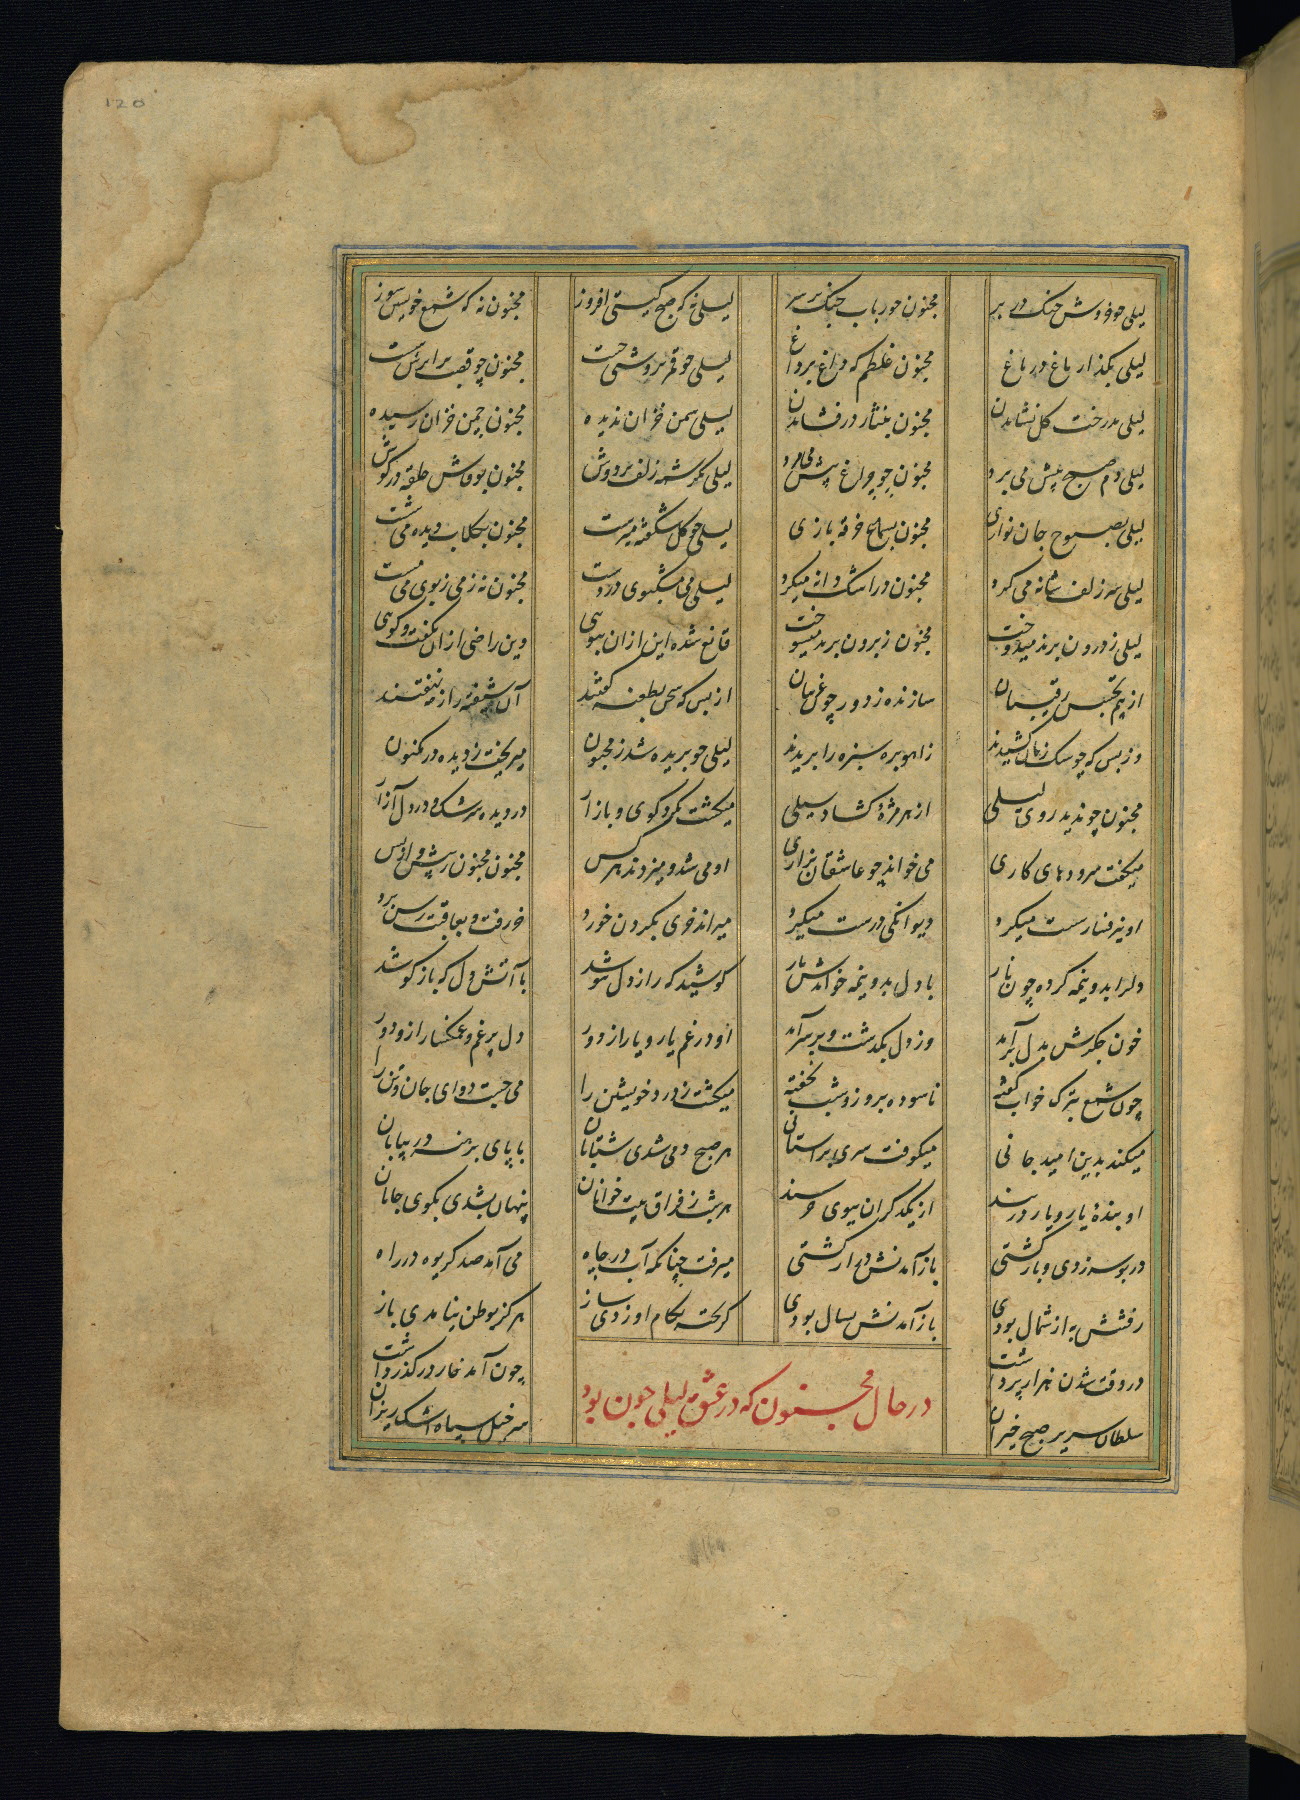 120
لیلی چو فروش چنگ در بر مجنون چو رباب چنگ بر سر لیلی نه که صبح گیتی افروز مجنون نه که شمع خویش سوز
لیلی بگذار باغ در باغ مجنون غلطم که داغ بر داغ لیلی چو قمر بروشنی چست مجنون چو قصب برابرش سست
لیلی بدرخت گل نشاندن مجنون بنثار در فشاندن لیلی سمن خزان ندیده مجنون چمن خزان رسیده
لیلی دم صبح پیش می برد مجنون چو چراغ پیش می مرد لیلی بکرشمه زلف بر دوش مجنون بوفاش حلقه در گوش
لیلی بصبوح جان نوازی مجنون بسماع خرقه بازی لیلی چو گل شکفته میرست مجنون بگلاب دیده می شست
لیلی سر زلف شانه می کرد مجنون در اشک دانه میکرد لیلی می مشکبوی در دست مجنون نه ز می ز بوی می مست
لیلی ز درون پرند میدوخت مجنون ز برون پرند میسوخت قانع شده این از ان ببوی وین راضی از ان بگفت و گوی
از بیم تجسس رقیبان سازنده ز دور چو غریبان از بس که سخن بطعنه گفتند آن شیفته راز نیفتند
وز بس که چو سک زبان کشیدند ز اهو بره سبزه را بریدند لیلی چو بریده شد ز مجنون میریخت ز دیده در مکنون
مجنون چو ندید روی لیلی از هر مژه گشاد سیلی میگشت بگرد کوی و بازار در دیده سرشک و در دل آزار
میگفت سرودهای کاری می خواند چو عاشقان بزاری او می شد و میزدند هر کس مجنون مجنون ز پیش و از پس
او نیز فسار سست میکرد دیوانگی درست میکرد میراند خری بگردن خورد خر رفت و بعاقبت رسن برد
دلرا بدو نیمه کرده چون نار تا دل بدو نیمه خواندش یار کوشید که راز دل نپوشد با آتش دل که باز کوشد
خون جگرش بدل برآمد وز دل بگذشت و بر سر آمد او در غم یار و یار ازو دور دل پر غم و غمگسار ازو دور
چون شمع بترک خواب گفته ناسوده بروز و شب نخفته میکشت ز درد خویشتن را می جست دوای جان و تن را
میکند بدین امید جانی میکوفت سری بر استانی هر صبح دمی شدی شتابان با پای برهنه در بیابان
او بندهٔ یار و یار در بند از یکدگران ببوی خرسند هر شب ز فراق بیت خوانان پنهان بشدی بکوی جانان
در بوسه زدی و بازگشتی باز آمدنش دراز گشتی میرفت چنانکه آب در چاه می آمد صد گریوه در راه
رفتنش به از شمال بودی باز آمدنش بسال بودی گر بخت بکام او زدی ساز هرگز بوطن نیامدی باز
در وقت شدن هزار پر داشت چون آمد خار در گذر داشت
در حال مجنون که در عشق لیلی چون بود
سلطان سریر صبح خیزان سرخیل سپاه اشک ریزان